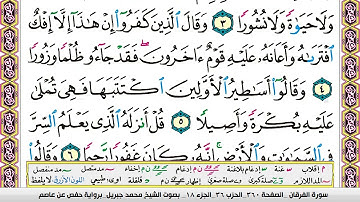 وَلَا حَيَوٰةً وَلَا نُشُورًا ٣ وَقَالَ ٱلَّذِينَ كَفَرُوٓا۟ إِنْ هَـٰذَآ إِلَّآ إِفْكٌ
ٱفْتَرَىٰهُ وَأَعَانَهُۥ عَلَيْهِ قَوْمٌ ءَاخَرُونَ ۖ فَقَدْ جَآءُو ظُلْمًا وَزُورًا
٤ وَقَالُوٓا۟ أَسَـٰطِيرُ ٱلْأَوَّلِينَ ٱكْتَتَبَهَا فَهِىَ تُمْلَىٰ
عَلَيْهِ بُكْرَةً وَأَصِيلًا ٥ قُلْ أَنزَلَهُ ٱلَّذِى يَعْلَمُ ٱلسِّرَّ
فِى ٱلسَّمَـٰوَٰتِ وَٱلْأَرْضِ ۚ إِنَّهُۥ كَانَ غَفُورًا رَّحِيمًا ٦ وَقَالُوا۟
سورة الفرقان الصفحة ٣٦٠ الحزب ٣٦ الجزء ١٨ بصوت الشيخ محمد جبريل برواية حفص عن عاصم